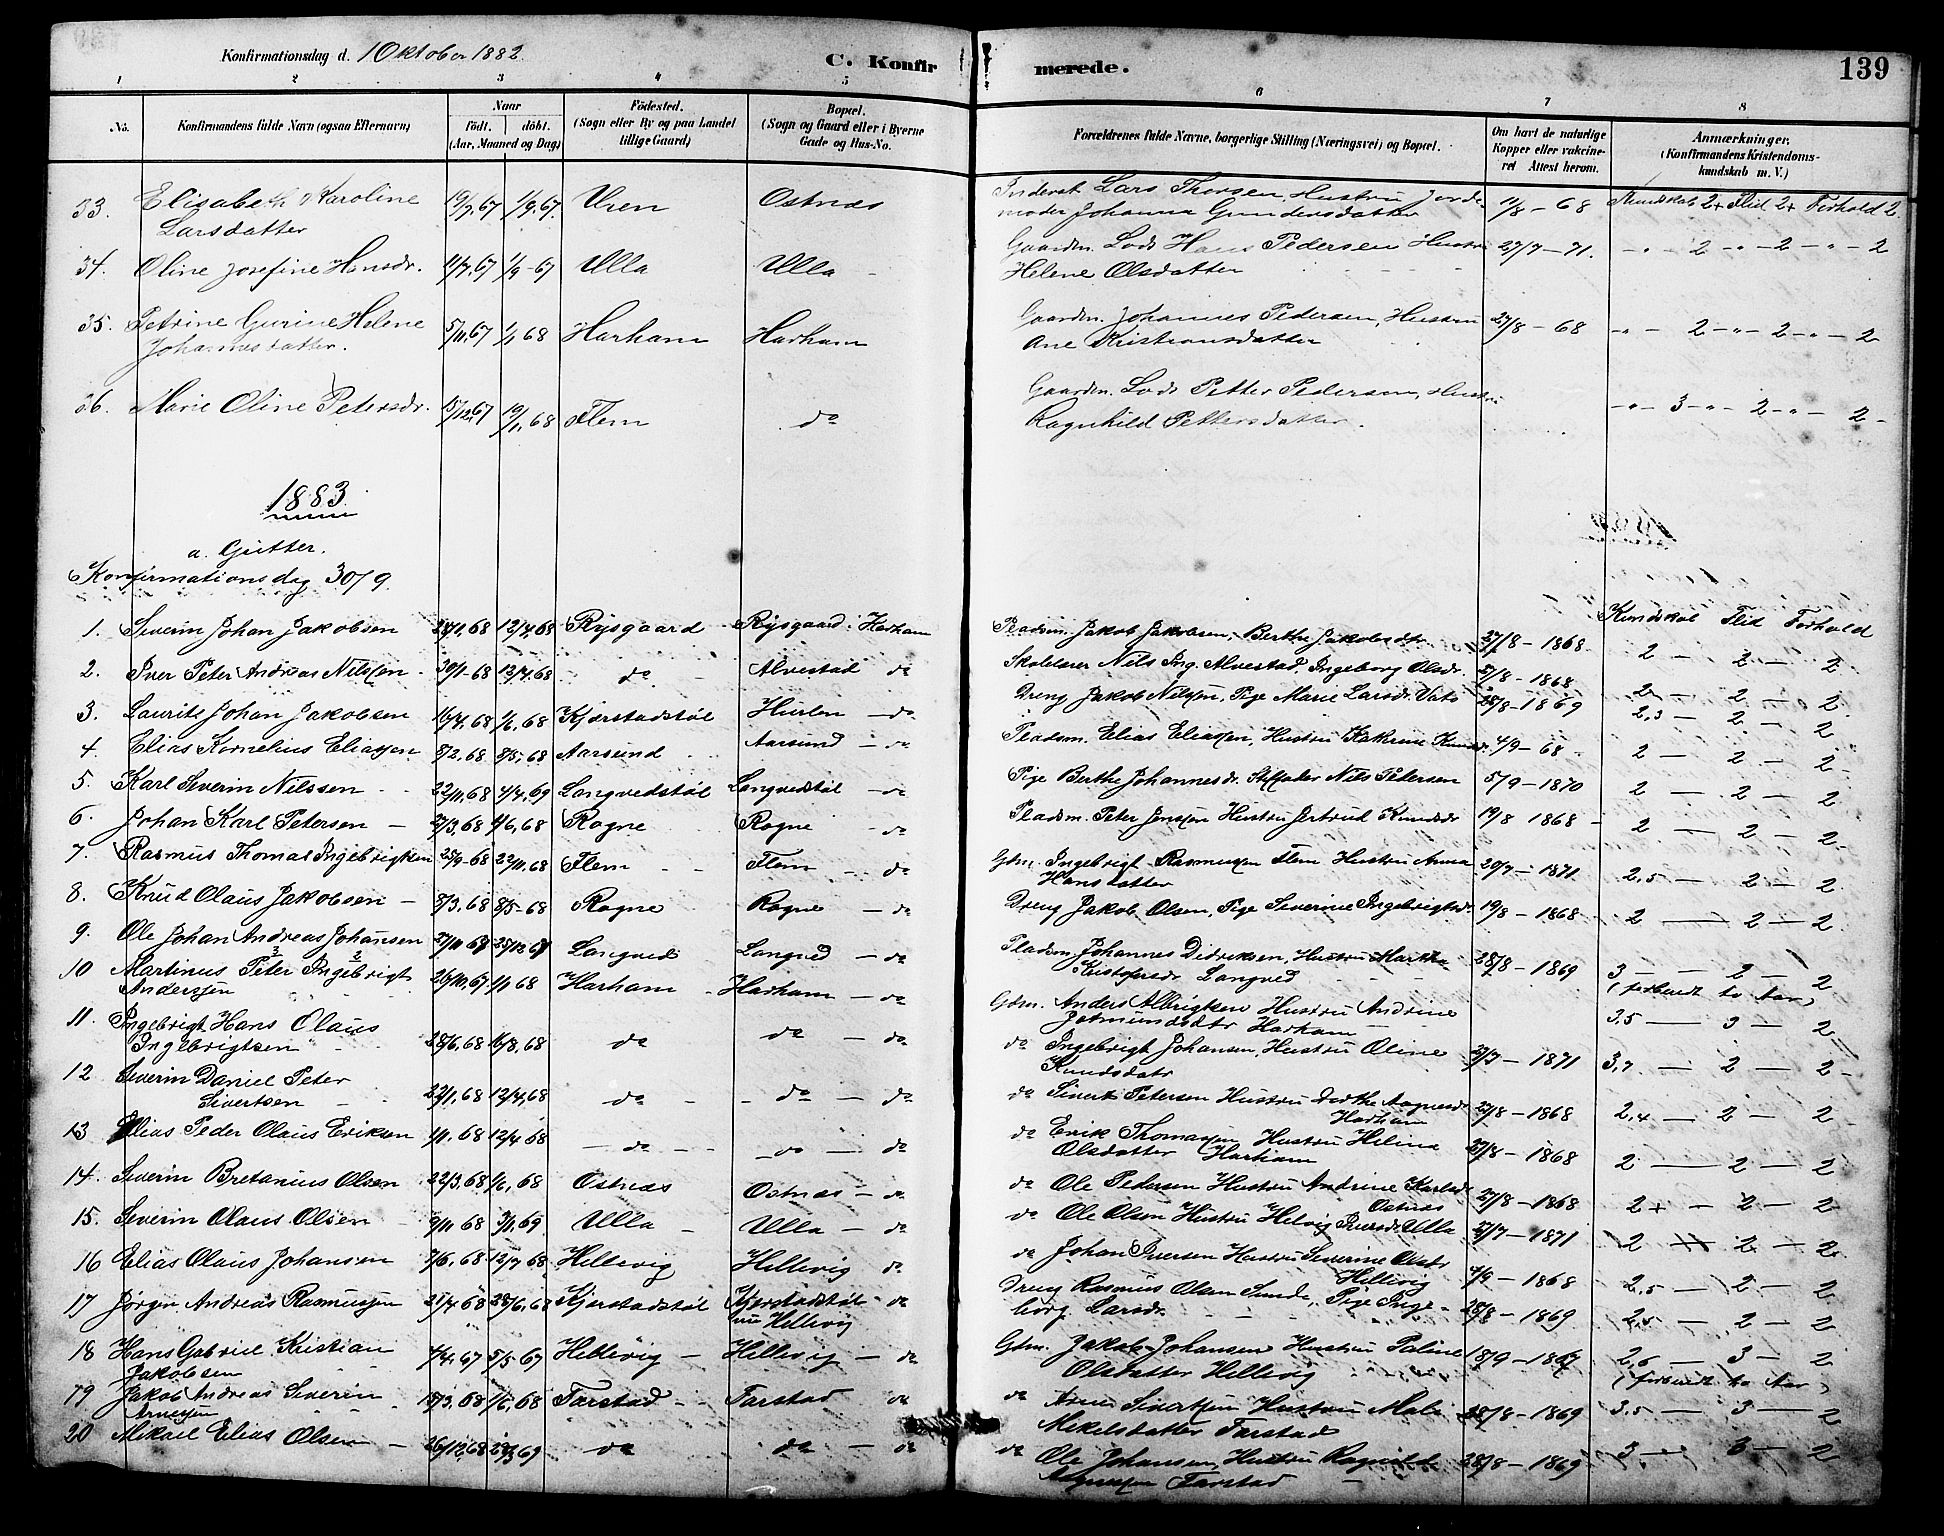 Konfirmationsdag d. 1 Oktober 1882. C. Konfirmerede. 139
1 2 3 4 5 6 7 8
No. Konfirmandens fulde Navn (ogsaa Efternavn) Naar födt. döbt. (Aar, Maaned og Dag) Födested. (Sogn eller By og paa Landet tillige Gaard) Bopæl. (Sogn og Gaard eller i Byerne Gade og Hus-No. Forældrenes fulde Navne, borgerlige Stilling (Næringsvei) og Bopæl. Om havt de naturlige Kopper eller vakcineret Attest herom. Anmærkninger. (Konfirmandens Kristendomskundskab m. V.)
33. Elisabeth Karoline Larsdatter 19/7, 67 1/9, 67 Uren Ostnæs Lars Thorsen, Hustru Jordemoder Johanna Gundersdatter 1/8 - 68 Kundskab 2+ Flid 2+ Forhold 2
34. Oline Josefine Hansdr. 1/9 - 67 Ulla Ulla Gaardm. Lods Hans Pedersen Hustru Helene Olsdatter 27/7 - 71. -"- 2 -"- 2 -"- 2
35. Petrine Gurine Helene Johannesdatter. 5/11, 67 1/1, 68 Harham Harham Gaardm. Johannes Pedersen, Hustru Ane Kristiansdatter 27/8 - 68 -"- 2 -"- 2 -"- 2
36. Marie Oline Petersdr. 15/12, 67 19/1, 68 Flem do Gaardm. Lods Petter Pedersen, Hustru Ragnhild Pettersdatter. -"- 3 -"- 2 -"- 2
1883
a. Gutter.
Konfirmationsdag 30/9.
Kundskab Flid Forhold
1. Severin Johan Jakobsen 12/4, 68 Rysgaard Rysgaard Harham Pladsm. Jakob Jakobsen, Berthe Jakobsdtr. 27/8 - 1868. 2 - 2 - 2
2. Iver Peter Andreas Nilssen 30/1 - 68 12/4, 68 do Alvestad do Skolelærer Nils Ing. Alvestad, Ingeborg Olsdr. 5/8 - 1868 2 - 2 - 2
3. Laurits Johan Jakobsen 16/4, 68 1/6, 68 Kjærstadstöl Huslen do Dreng Jakob Nilssen, Pige Marie Larsdr. 28/8 - 1869 2,3 - 2 - 2
4. Elias Kornelius Eliassen 8/2, 68 8/5, 68 Aarsund Aarsund do Pladsm. Elias Eliassen, Hustru Katrine 4/9 - 68 2 - 2 - 2
5. Karl Severin Nilssen 22/11, 68 4/4, 69 Longvedstöl Longvedstöl do Pige Berthe Johannesdr. Nils Petersen 5/9 - 1870 2 - 2 - 2
6. Johan Karl Petersen 27/3, 68 1/6, 68 Rogne Rogne do Pladsm. Peter Jenssen Hustru Jertrud Knudsdr 19/8 1868 2 - 2 - 2
7. Rasmus Thomas Ingebrigtsen 25/9 - 68 22/11, 68 Flem Flem do Gdm. Ingebrigt Rasmussen Flem Hustru Anna Hansdatter 20/7 - 1871. 2,5 - 2 - 2
8. Knud Olaus Jakobsen 8/3, 68 8/5 - 68 Rogne Rogne do Dreng Jakob Olsen, Pige Severine Ingebrigtsdr. 19/8 - 1868 2 - 2 - 2
9. Ole Johan Andreas Johansen Longved Longved do Pladsm. Johannes Didriksen, Hustru Martha Kristofersdr Longved 28/8 - 1869 3 - 2 - 2
10 Martinus Peter Ingebrigt Anderssen 26/10, 67 1/1 68 Harham Harham do Gdm. Anders Albrigtsen Hustru Andrine Harham (forberedt to Aar) 3,5 - 3 - 2
11. Ingebrigt Hans Olaus Ingebrigtsen 28/6, 68 16/8, 68 do do do do Ingebrigt Johansen, Hustru Oline Knudsdatr 27/7 - 1871 3,7 - 2 - 2
12 Severin Daniel Peter Sivertsen 22/1, 68 12/4, 68 do do do do Sivert Petersen Hustru Harham 27/8 - 1868 2,4 - 2 - 2
13 Elias Peder Olaus Eriksen 1/1, 68 12/4 68 do do do do Erik Thomassen Hustru Helina Olsdatter Harham 27/8 - 1868 2 - 2 - 2
14. Severin Bretanius Olsen 22/3, 68 1/6, 68 Ostnæs Ostnæs do do Ole Pedersen Hustru Andrine Karlsdr Ostnæs 27/8 - 1868 2+ - 2 - 2
15. Severin Olaus Olsen 9/11 68 3/1, 69 Ulla Ulla do do Ole Olsen Hustru Helvig Iversdr Ulla 27/7 - 1871 2 - 2 - 2
16 Elias Olaus Johansen 7/6, 68 12/7 68 Hellevig Hellevig do do Johan Iversen Hustru Severine Olsdr Hellevig 4/9 - 1868 2,5 - 2 - 2
17 Jörgen Andreas Rasmussen 21/4 68 28/6, 68 Kjærstadstöl Kjærstadstöl nu Hellevig do Dreng Rasmus Olsen Sunde, Pige Ingeborg Larsdr. 28/8 - 1869 2,5 - 2 - 2
18 Hans Gabriel Kristian Jakobsen 7/4, 67 5/5 67 Hellevig Hellevig do Gdm. Jakob Johansen Hustru Paline Olsdatter Hellevig 18/9 - 1867 2,6 - 3 - 2 (forberedt to Aar)
19 Jakob Andreas Severin Arnessen 18/3, 68 1/6, 68 Farstad Farstad do do Arne Sivertsen Hustru Mali Mikelsdatter Farstad 28/8 - 1869 3,5 - 3 - 2
20 Mikael Elias Olsen 26/12, 68 28/3 69 do do do do Ole Johansen, Hustru Ragnild Farstad 28/8 - 1869 3 - 3 - 2